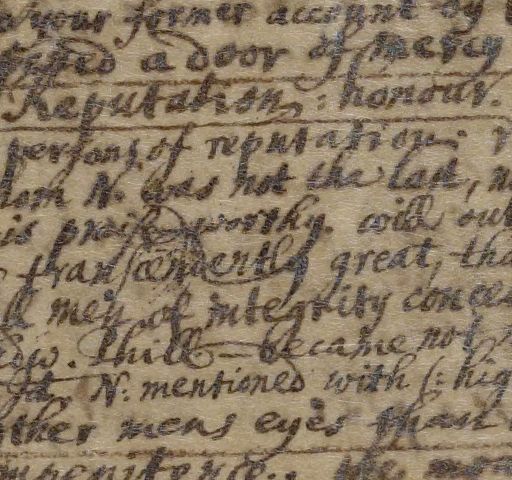 your former account by
a door of mercy
Reputation, : honour.
persons of reputation.
N. was not the last,
is praise-worthy. will out
transcendently great, tha
men of integrity concea
became not
It. N. mentioned with (: hig
ther mens eyes than
the mo